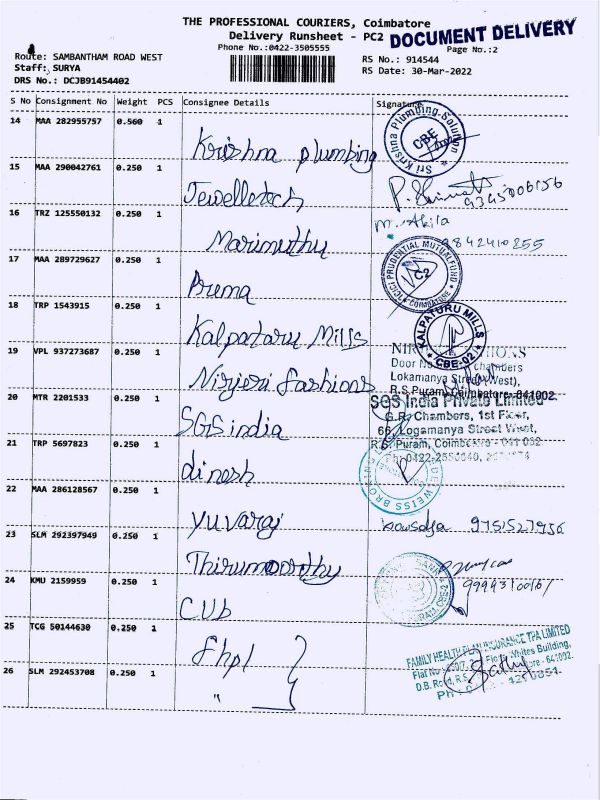 THE PROFESSIONAL COURIERS, Coimbatore
Delivery Runsheet - PC2
DOCUMENT DELIVERY
Phone No.:0422-3505555
Page No.:2
Route: SAMBANTHAM ROAD WEST
RS No.: 914544
Staff: SURYA
RS Date: 30-Mar-2022
DRS No.: DCJB91454402
S No Consignment No Weight PCS Consignee Details Signature
14 MAA 282955757 0.560 1
Krishna plumbing
Sri Krishna Plumbing Solution
CBE
15 MAA 290042761 0.250 1
Jewelletech
16 TRZ 125550132 0.250 1
m. Akila
Marimuthu
9842410255
17 MAA 289729627 0.250 1
Prema
ICICI PRUDENTIAL MUTUAL FUND
C2
COIMBATORE
18 TRP 1543915 0.250 1
Kalpataru Mills
KALPATURU MILLS
CBE-02
19 VPL 937273687 0.250 1
Door No
Chambers
Lokamanya Street (West),
R.S.Puram, Coimbatore-641002.
Nirjeri fashions
20 MTR 2201533 0.250 1
SGS India Private Limited
G.R. Chambers, 1st Floor,
66, Logamanya Street West,
SGS india
21 TRP 5697823 0.250 1
R.S. Puram, Coimbatore - 641 002.
Ph: 0422-2550640,
dinesh
22 MAA 286128567 0.250 1
yuvaraj
kowsalya 9751527956
23 SLM 292397949 0.250 1
Thirumoorthy
24 KMU 2159959 0.250 1
CUb
25 TCG 50144630 0.250 1
fhpl
FAMILY HEALTH PLAN INSURANCE TPA LIMITED
Whites Building,
D.B. Road, R.S.
- 641002.
26 SLM 292453708 0.250 1
"